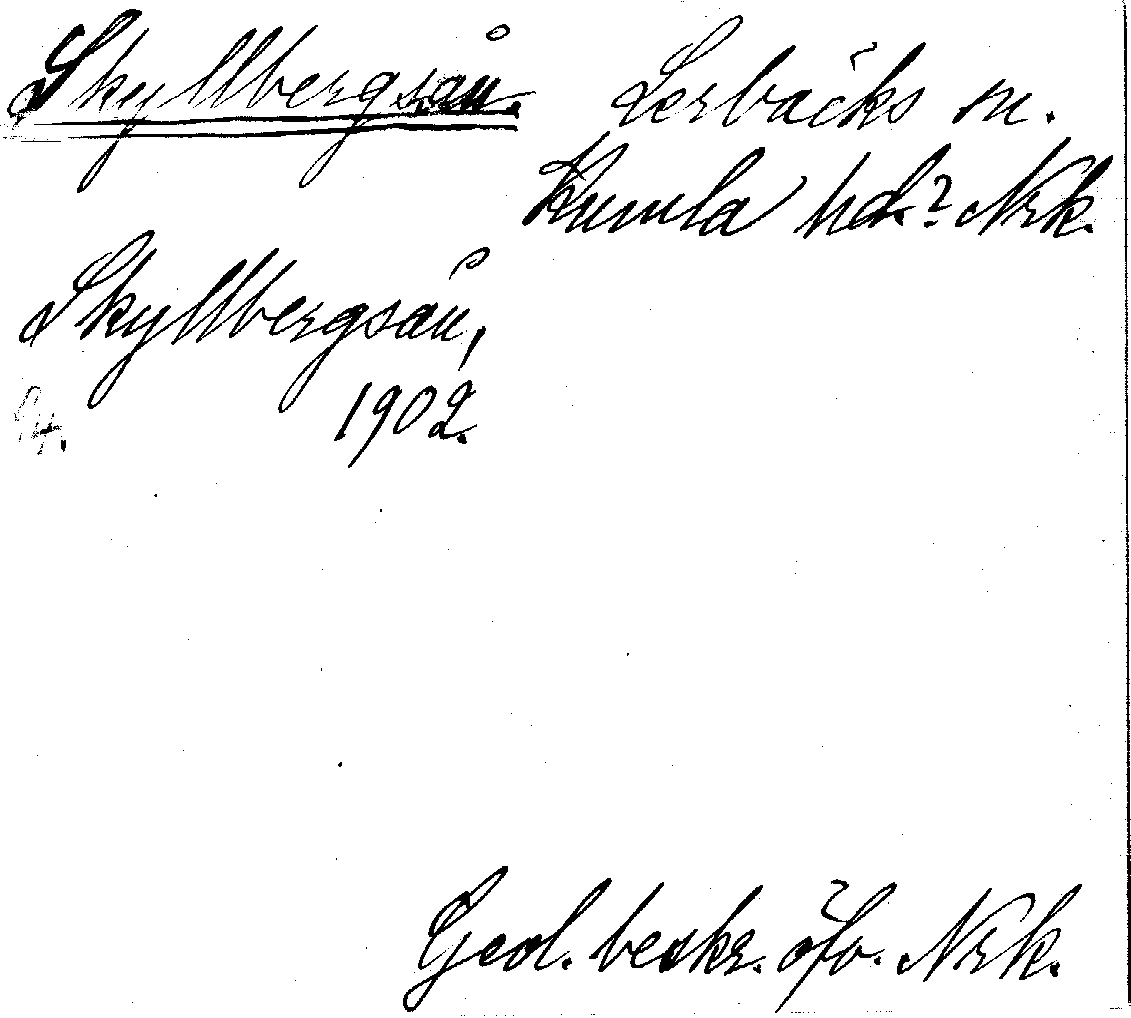 Skyllbergsån. Lerbäcks sn.
Kumla hd.? Nrk.
Skyllbergsån,
1902.
Geol. beskr. öfv. Nrk.